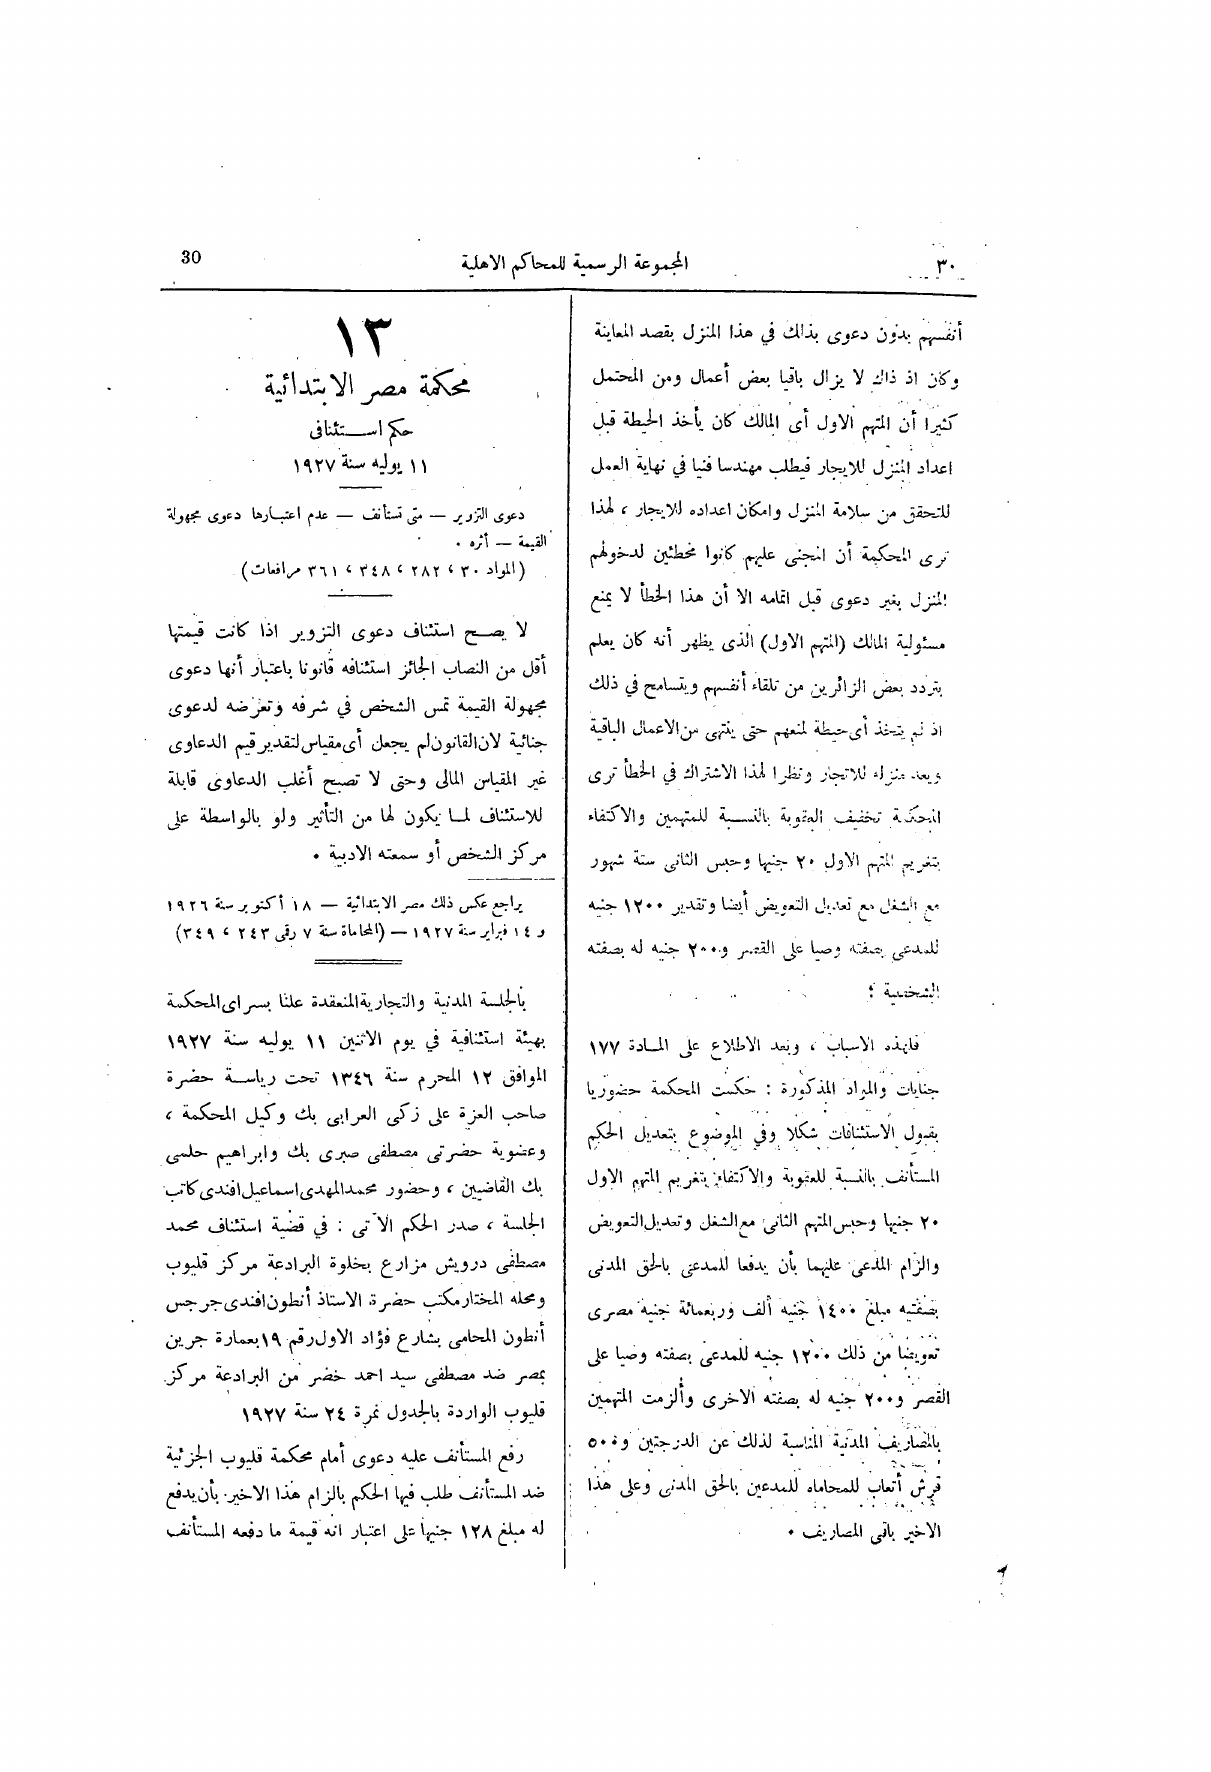 ٣٠
المجموعة الرسمية للمحاكم الاهلية
30
أنفسهم بدون دعوى بذلك في هذا المنزل بقصد المعاينة
وكان اذ ذاك لا يزال باقيا بعض أعمال ومن المحتمل
كثيرا أن المتهم الاول أى المالك كان يأخذ الحيطة قبل
اعداد المنزل للايجار فيطلب مهندسا فنيا في نهاية العمل
للتحقق من سلامة المنزل وامكان اعداده للايجار ، لهذا
ترى المحكمة أن المجنى عليهم كانوا مخطئين لدخولهم
المنزل بغير دعوى قبل اتمامه الا أن هذا الخطأ لا يمنع
مسئولية المالك (المتهم الاول) الذى يظهر أنه كان يعلم
بتردد بعض الزائرين من تلقاء أنفسهم ويتسامح في ذلك
اذ لم يتخذ أى حيطة لمنعهم حتى ينتهى من الاعمال الباقية
ويعد منزله للايجار ونظرا لهذا الاشتراك في الخطأ ترى
المحكمة تخفيف العقوبة بالنسبة للمتهمين والاكتفاء
بتغريم المتهم الاول ٢٠ جنيها وحبس الثانى ستة شهور
مع الشغل مع تعديل التعويض أيضا وتقدير ١٢٠٠ جنيه
للمدعى بصفته وصيا على القصر و٢٠٠ جنيه له بصفته
الشخصية ؛
فلهذه الاسباب ، وبعد الاطلاع على المادة ١٧٧
جنايات والمواد المذكورة : حكمت المحكمة حضوريا
بقبول الاستئنافات شكلا وفي الموضوع بتعديل الحكم
المستأنف بالنسبة للعقوبة والاكتفاء بتغريم المتهم الاول
٢٠ جنيها وحبس المتهم الثانى مع الشغل وتعديل التعويض
والزام المدعى عليهما بأن يدفعا للمدعى بالحق المدنى
بصفتيه مبلغ ١٤٠٠ جنيه ألف وربعمائة جنيه مصرى
تعويضا من ذلك ١٢٠٠ جنيه للمدعى بصفته وصيا على
القصر و٢٠٠ جنيه له بصفته الاخرى وألزمت المتهمين
بالمصاريف المدنية المناسبة لذلك عن الدرجتين و٥٠٠
قرش أتعاب للمحاماه للمدعين بالحق المدنى وعلى هذا
الاخير باقى المصاريف .
١٣
محكمة مصر الابتدائية
حكم استئنافى
١١ يوليه سنة ١٩٢٧
دعوى التزوير — متى تستأنف — عدم اعتبارها دعوى مجهولة
القيمة — أثره .
(المواد ٣٠ ، ٢٨٢ ، ٣٤٨ ، ٣٦١ مرافعات)
لا يصح استئناف دعوى التزوير اذا كانت قيمتها
أقل من النصاب الجائز استئنافه قانونا باعتبار أنها دعوى
مجهولة القيمة تمس الشخص في شرفه وتعرضه لدعوى
جنائية لان القانون لم يجعل أى مقياس لتقدير قيم الدعاوى
غير المقياس المالى وحتى لا تصبح أغلب الدعاوى قابلة
للاستئناف لما يكون لها من التأثير ولو بالواسطة على
مركز الشخص أو سمعته الادبية .
يراجع عكس ذلك مصر الابتدائية — ١٨ أكتوبر سنة ١٩٢٦
و ١٤ فبراير سنة ١٩٢٧ — (المحاماة سنة ٧ رقى ٢٤٣ ، ٣٤٩)
بالجلسة المدنية والتجارية المنعقدة علنا بسراى المحكمة
بهيئة استئنافية في يوم الاثنين ١١ يوليه سنة ١٩٢٧
الموافق ١٢ المحرم سنة ١٣٤٦ تحت رياسة حضرة
صاحب العزة على زكى العرابى بك وكيل المحكمة ،
وعضوية حضرتى مصطفى صبرى بك وابراهيم حلمى
بك القاضيين ، وحضور محمد المهدى اسماعيل افندى كاتب
الجلسة ، صدر الحكم الآتى : في قضية استئناف محمد
مصطفى درويش مزارع بخلوة البرادعة مركز قليوب
ومحله المختار مكتب حضرة الاستاذ أنطون افندى جرجس
أنطون المحامى بشارع فؤاد الاول رقم ١٩ بعمارة جرين
بمصر ضد مصطفى سيد احمد خضر من البرادعة مركز
قليوب الواردة بالجدول نمرة ٢٤ سنة ١٩٢٧
رفع المستأنف عليه دعوى أمام محكمة قليوب الجزئية
ضد المستأنف طلب فيها الحكم بالزام هذا الاخير بأن يدفع
له مبلغ ١٢٨ جنيها على اعتبار انه قيمة ما دفعه المستأنف